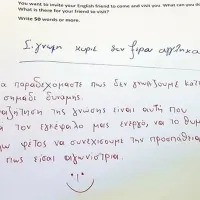 You want to invite your English friend to come and visit you. What can you do
What is there for your friend to visit?
Write 50 words or more.
Σιγνώμη κυριέ δεν ξέρω αγγλικά
α παραδεχόμαστε πως δεν γνωρίζουμε κάτι
σημάδι δύναμης.
αζήτηση της γνώσης είναι αυτή που
τον εγκέφαλο μας ενεργό, να το θυμ
φέτος να συνεχίσουμε την προσπάθεια
πως είσαι αγωνίστρια.